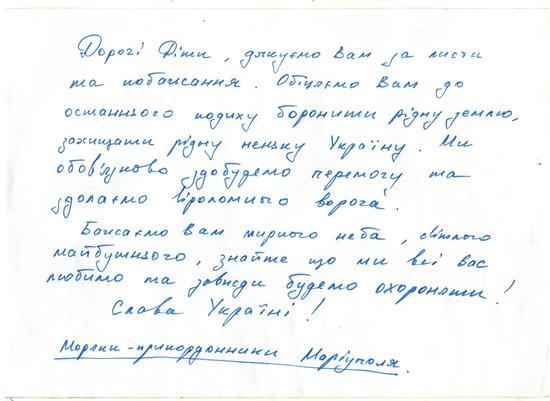 Дорогі Діти, дякуємо Вам за листи
та побажання. Обіцяємо Вам до
останнього подиху боронити рідну землю,
захищати рідну неньку Україну. Ми
обов'язково здобудемо перемогу та
здолаємо віроломного ворога.
Бажаємо Вам мирного неба, світлого
майбутнього, знайте що ми всі вас
любимо та завжди будемо охороняти!
Слава Україні!
Моряки-прикордонники Маріуполя.